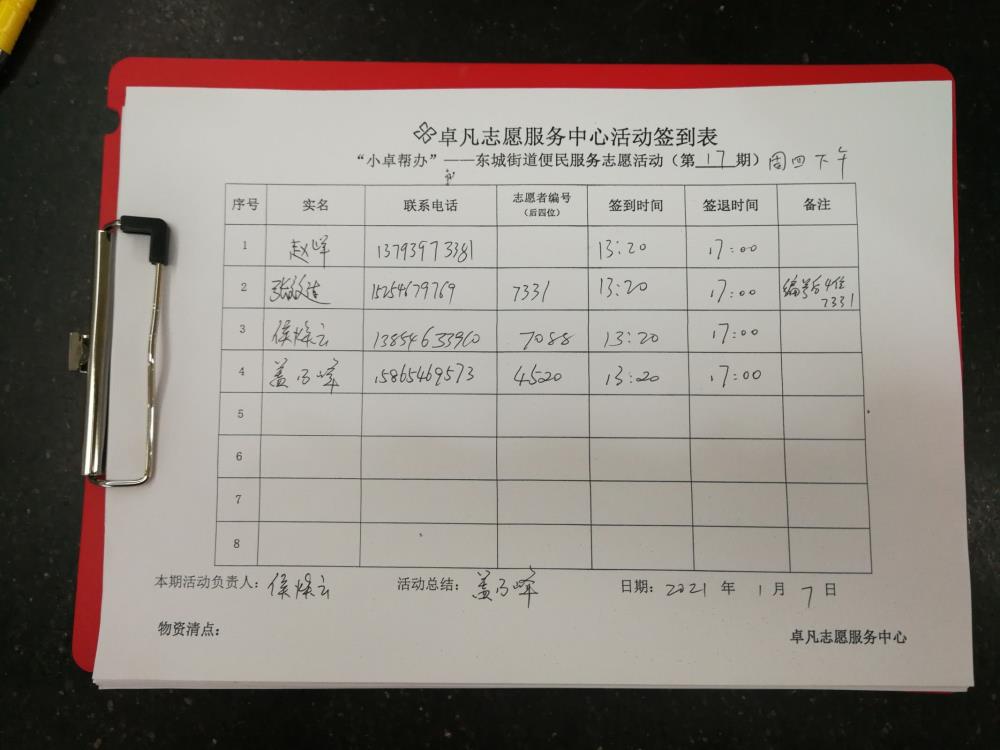 卓凡志愿服务中心活动签到表
“小卓帮办”——东城街道便民服务志愿活动（第17期）周四下午
序号 实名 联系电话 志愿者编号（后四位） 签到时间 签退时间 备注
1 赵峰 13793973381 13:20 17:00
2 15254679769 7331 13:20 17:00 编号后4位7331
3 侯焕云 13854633960 7088 13:20 17:00
4 盖乃峰 15865469573 4520 13:20 17:00
5
6
7
8
本期活动负责人：侯焕云 活动总结：盖乃峰 日期：2021年1月7日
物资清点： 卓凡志愿服务中心